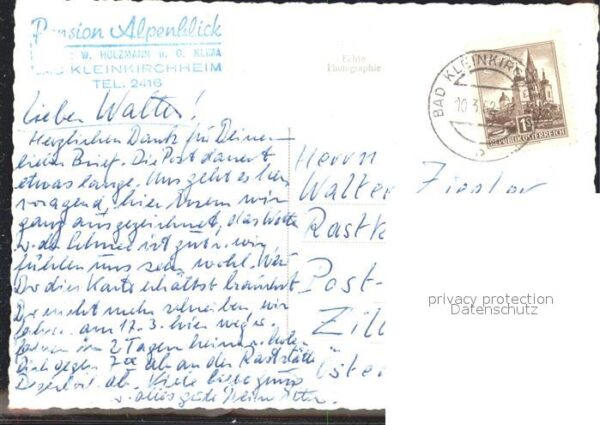 Pension Alpenblick
W. HOLZMANN u. G. KLIMA
BAD KLEINKIRCHHEIM
TEL. 2416
Echte
Photographie
BAD KLEINKIR
10.3.62
1S
REPUBLIK ÖSTERREICH
Lieber Walter!
Herzlichen Dank für Deinen
lieben Brief. Die Post dauert
etwas lange. Uns geht es her
vorragend, hier essen wir
ganz ausgezeichnet, das Wetter
u. der Schnee ist gut u. wir
fühlen uns sehr wohl. Wenn
Du diese Karte erhältst brauchst
Du nicht mehr schreiben, wir
fahren am 17.3. hier weg u.
in 2 Tagen heim u. holen
Dich gegen ab an der Raststätte
ab. Viele liebe Grüsse
u. alles gute Deine Eltern.
Herrn
Walter Ziegler
Post-
privacy protection
Datenschutz